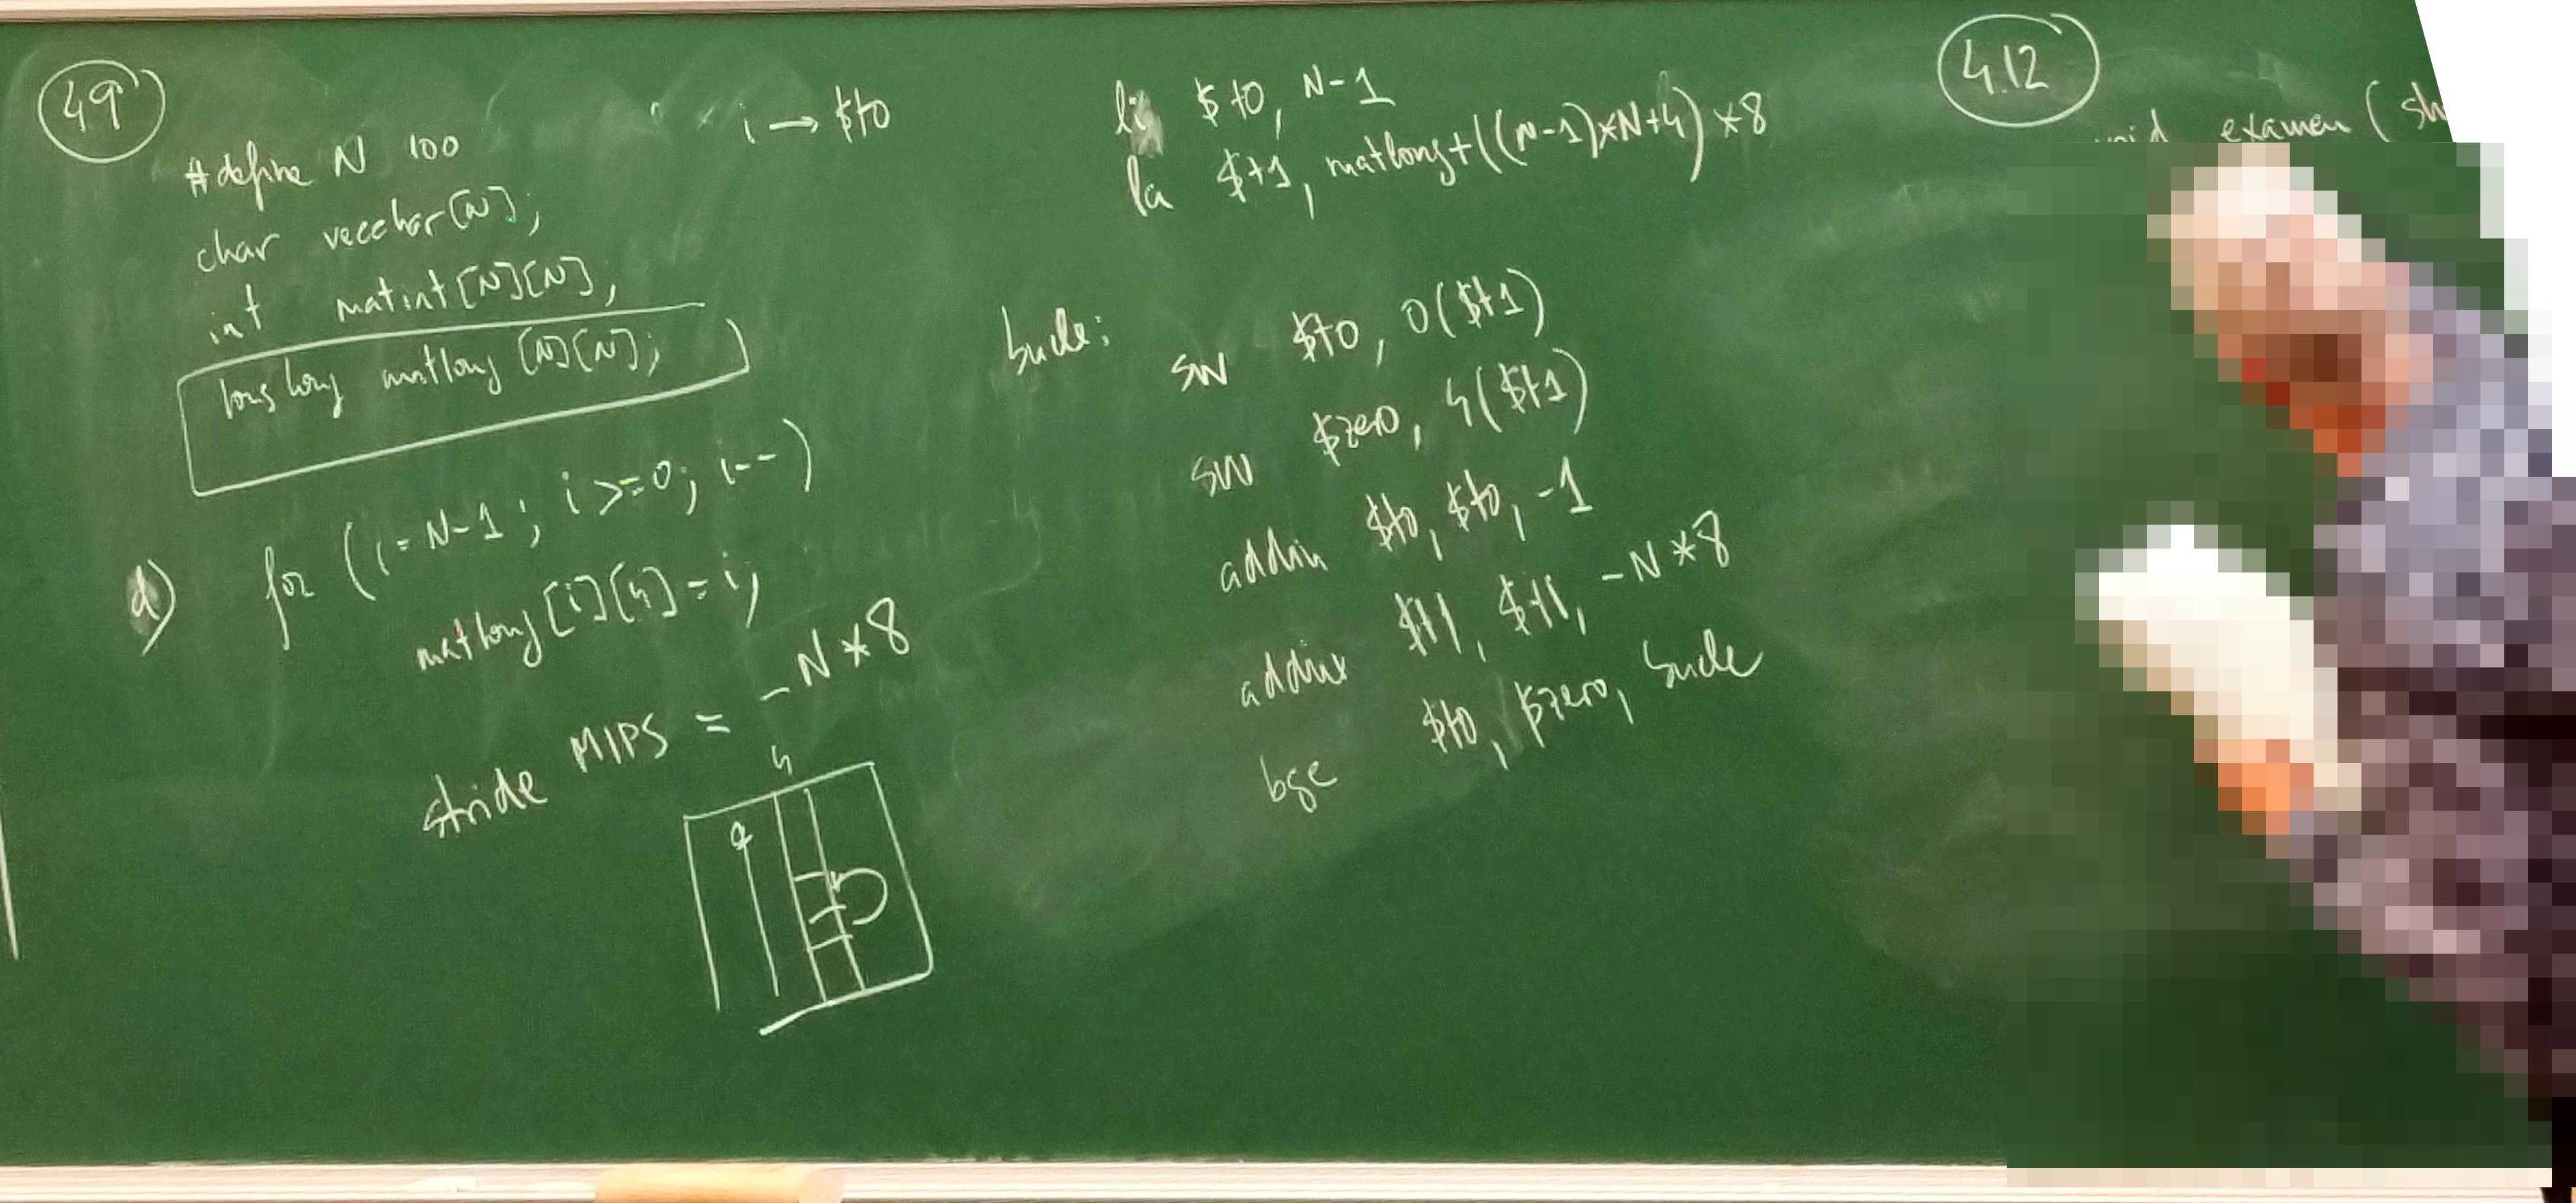 4.9
#define N 100
char vecchar[N];
int matint[N][N];
long long matlong[N][N];
d) for (i=N-1; i>=0; i--)
matlong[i][4]=i;
stride MIPS = -N*8
4
i → $t0
li $t0, N-1
la $t1, matlong+((N-1)*N+4)*8
bucle:
sw $t0, 0($t1)
sw $zero, 4($t1)
addiu $t0, $t0, -1
addiu $t1, $t1, -N*8
bge $t0, $zero, bucle
4.12
void examen (sh